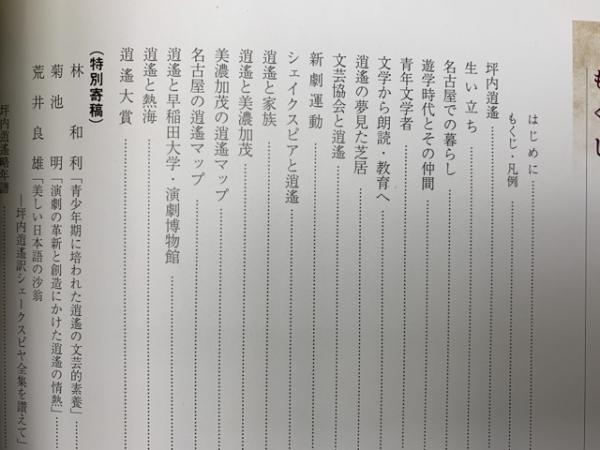 もくじ
はじめに
もくじ・凡例
坪内逍遙
生い立ち
名古屋での暮らし
遊学時代とその仲間
青年文学者
文学から朗読・教育へ
逍遙の夢見た芝居
文芸協会と逍遙
新劇運動
シェイクスピアと逍遙
逍遙と家族
逍遙と美濃加茂
美濃加茂の逍遙マップ
名古屋の逍遙マップ
逍遙と早稲田大学・演劇博物館
逍遙と熱海
逍遙大賞
(特別寄稿)
林和利「青少年期に培われた逍遙の文芸的素養」
菊池明「演劇の革新と創造にかけた逍遙の情熱」
荒井良雄「美しい日本語の沙翁
―坪内逍遙訳シェークスピヤ全集を讃えて」
坪内逍遙略年譜